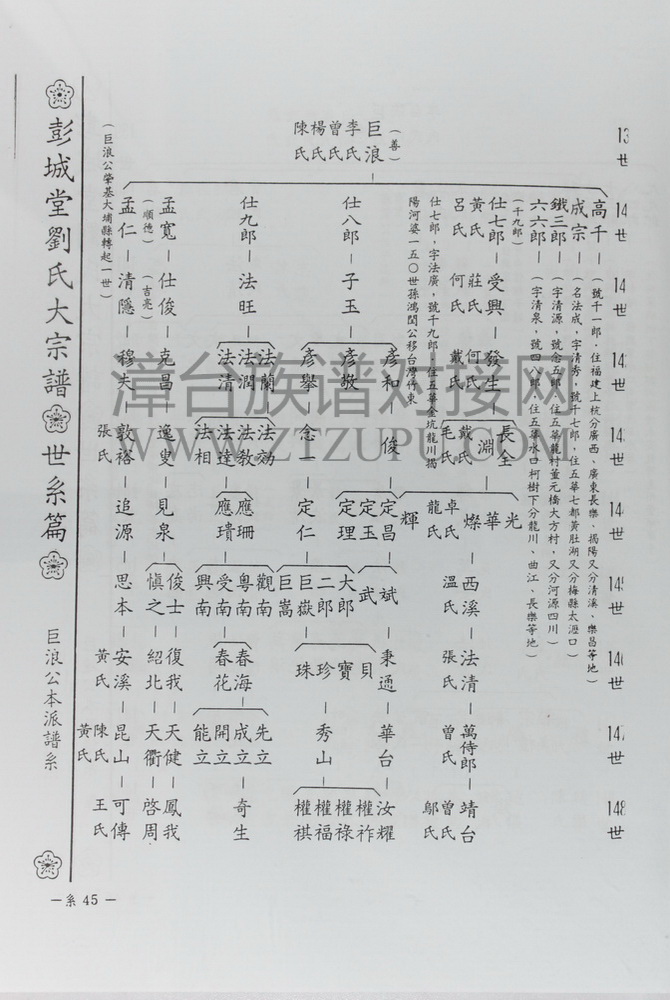 彭城堂劉氏大宗譜
世系篇
巨浪公本派譜系
巨浪
(善)
李氏
曾氏
楊氏
陳氏
高千—(號千一郎.住福建上杭分廣西、廣東長樂、揭陽又分清溪、樂昌等地)
成宗—(名法成,字清秀,號千七郎,住五華七都黃肚湖又分梅縣太瀝口)
鐵三郎—(字清源,號念五郎,住五華龍村董元橋大方村,又分河源四川)
六六郎—(字清泉,號四八郎,住五華水口柯樹下分龍川、曲江、長樂等地)
(千九郎)
仕七郎—受興—發生
黃氏 莊氏 何氏
呂氏 何氏 戴氏
長全
淵
戴氏
毛氏
光
華
燦
輝
卓氏
龍氏
西溪—法清—萬侍郎—靖台
溫氏 張氏 曾氏 曾氏
鄔氏
仕七郎,字法廣,號千九郎,住五華金坑龍川揭
陽河婆一五〇世孫鴻閩公移台灣竹東
仕八郎—子玉
彥和—俊
彥敬
彥舉—念一—定仁
定昌
定玉
定理
斌
武
大郎
二郎
巨嶽
巨嵩
秉通—華台—汝耀
貝
寶
珍
珠
秀山
權祚
權祿
權福
權祺
仕九郎—法旺
法蘭
法潤
法清
法効
法教
法達
法相
應珊
應瑻
觀南
粵南
受南
興南
春海
春花
先立
成立
開立
能立
奇生
孟寬—仕俊—克昌—逸叟—見泉
(順德)
(吉亮)
俊士—復我—天健—鳳我
愼之—紹北—天衢—啓周
孟仁—清隱—穆夫—敦裕—追源—思本—安溪—昆山—可傳
張氏
黃氏
陳氏
黃氏
王氏
(巨浪公肇基大埔縣轉起一世)
世
世
世
世
世
世
世
146世
147世
148世
—系 45—
漳台族谱对接网
WWW.ZTZUPU.COM